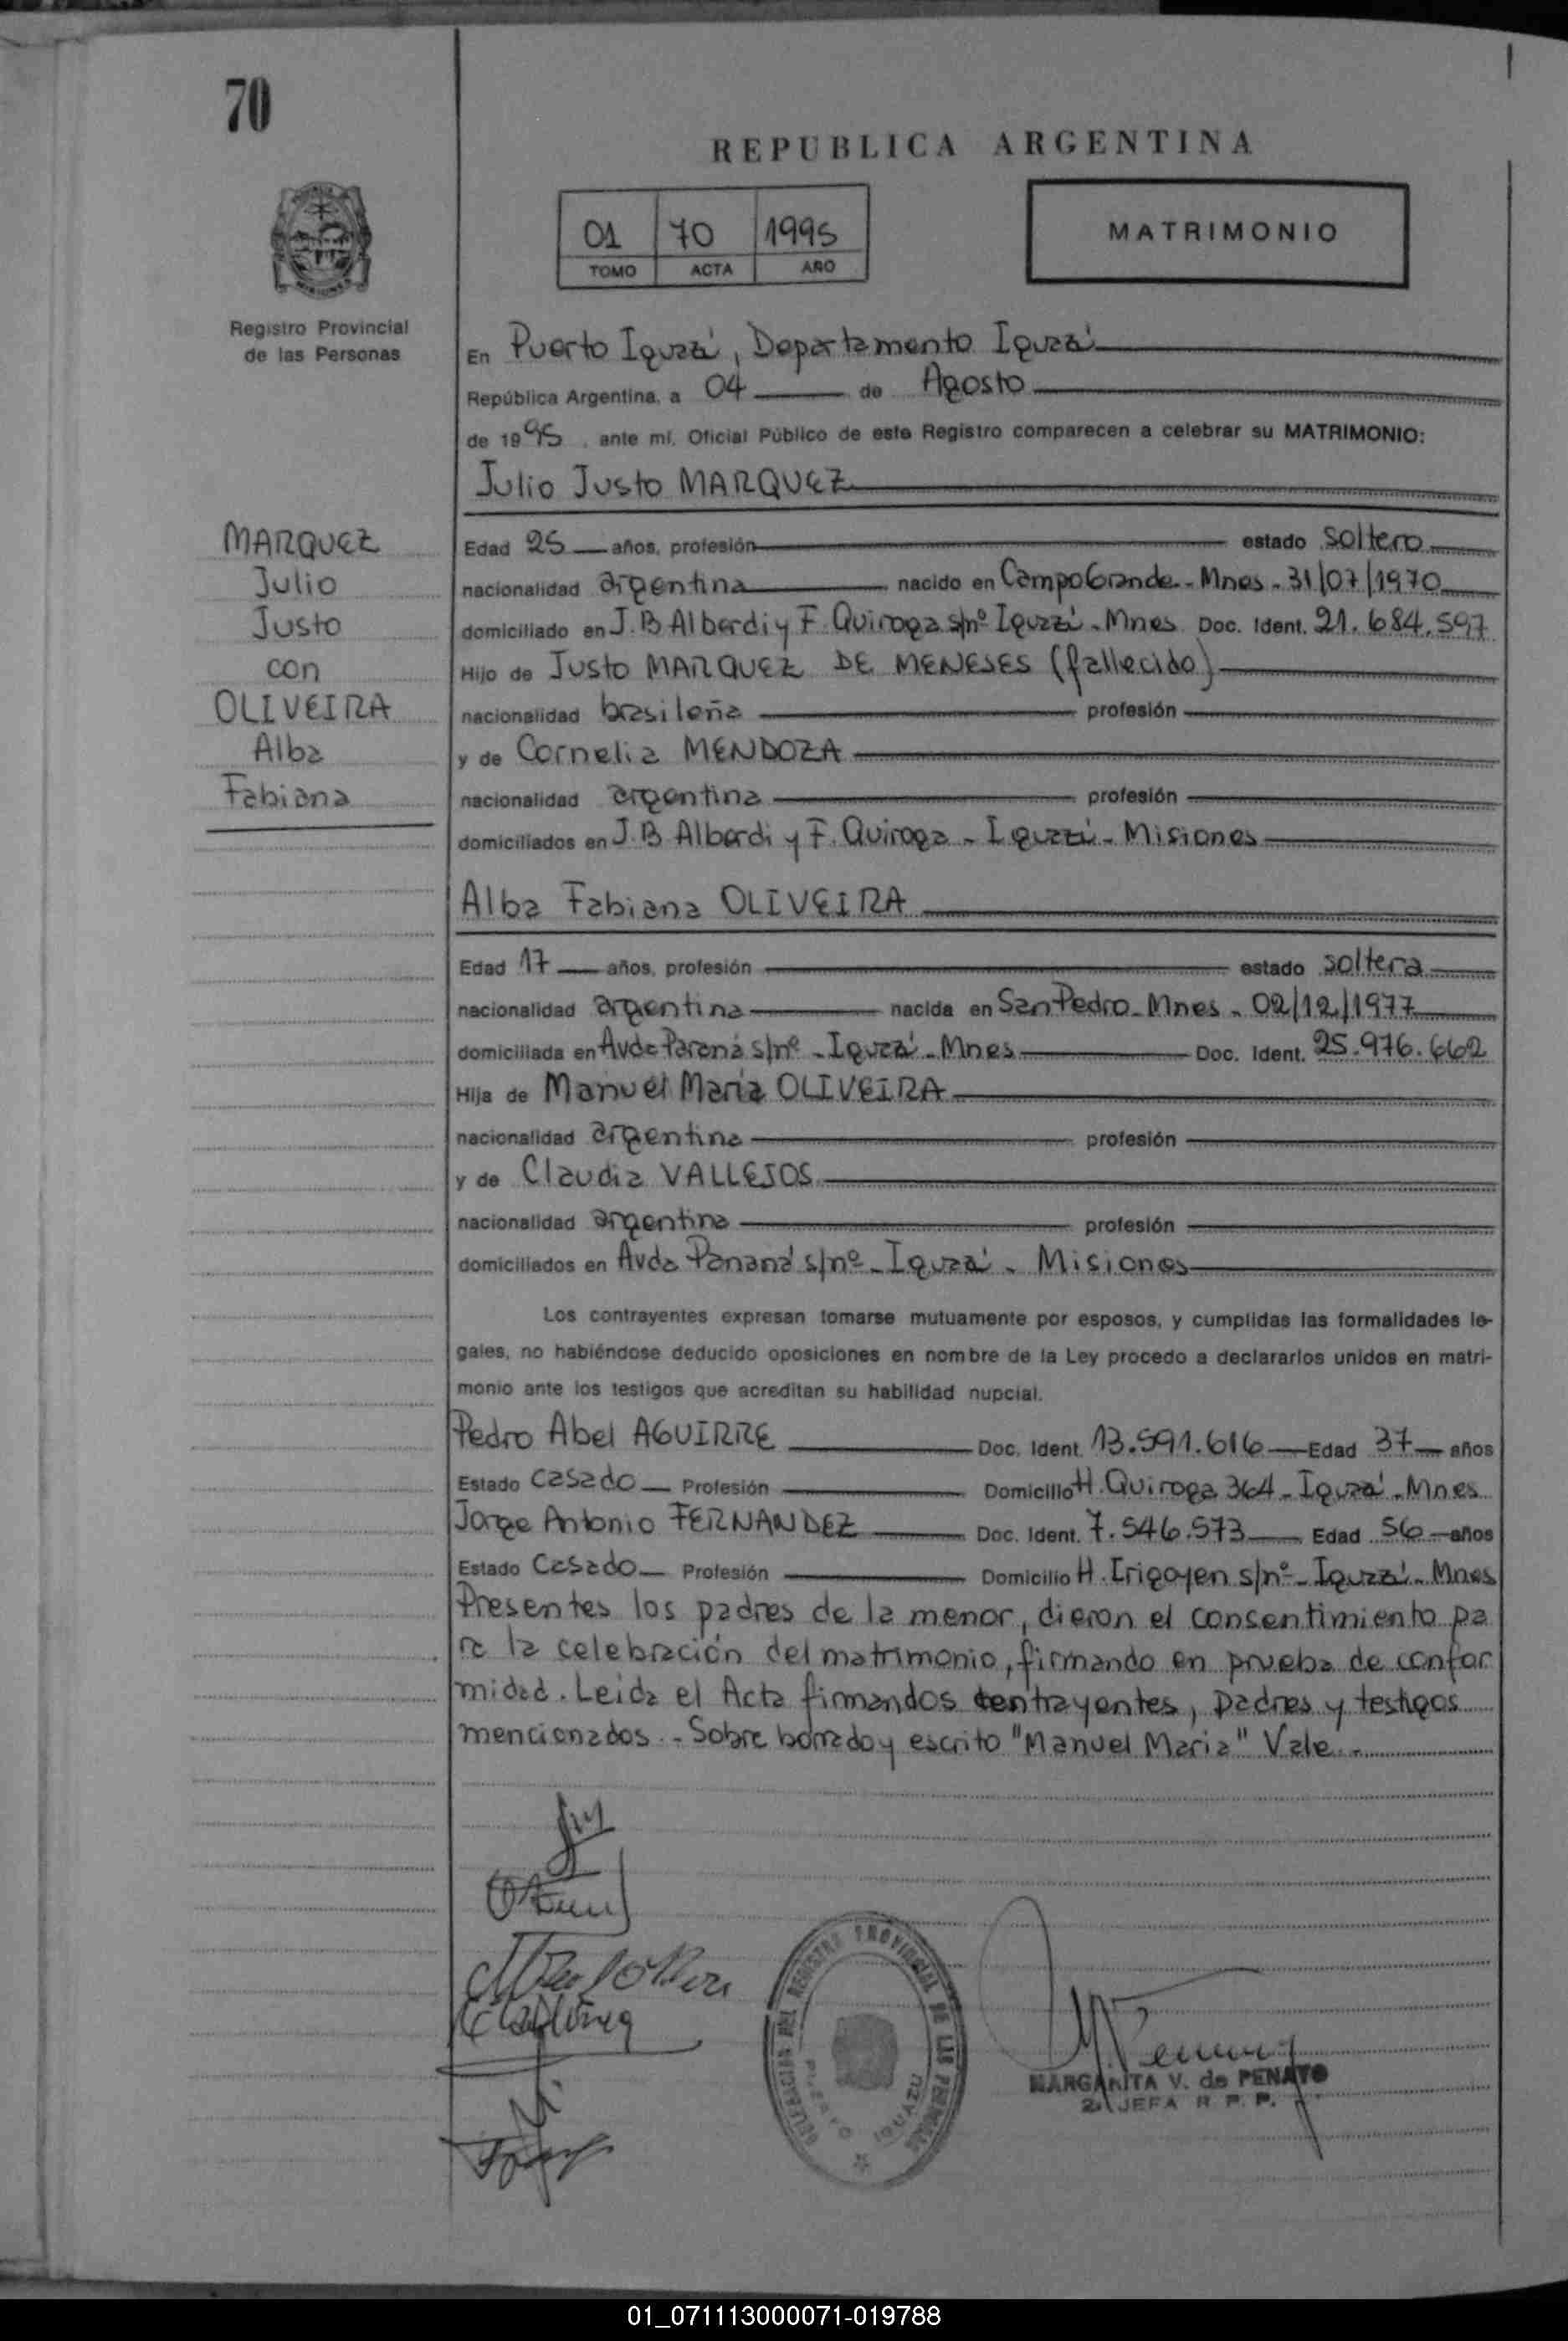 70
REPUBLICA ARGENTINA
01 70 1995
TOMO ACTA AÑO
MATRIMONIO
Registro Provincial
de las Personas
En Puerto Iguazú, Departamento Iguazú
República Argentina, a 04 de Agosto
de 1995, ante mí, Oficial Público de este Registro comparecen a celebrar su MATRIMONIO:
Julio Justo MARQUEZ
MARQUEZ
Julio
Justo
con
OLIVEIRA
Alba
Fabiana
Edad 25 años, profesión estado soltero
nacionalidad argentina nacido en Campo Grande - Mnes - 31/07/1970
domiciliado en J. B Alberdi y F. Quiroga s/nº Iguazú - Mnes Doc. Ident. 21.684.597
Hijo de Justo MARQUEZ DE MENESES (fallecido)
nacionalidad brasileña profesión
y de Cornelia MENDOZA
nacionalidad argentina profesión
domiciliados en J. B Alberdi y F. Quiroga - Iguazú - Misiones
Alba Fabiana OLIVEIRA
Edad 17 años, profesión estado soltera
nacionalidad argentina nacida en San Pedro - Mnes - 02/12/1977
domiciliada en Avda Paraná s/nº - Iguazú - Mnes Doc. Ident. 25.976.662
Hija de Manuel Maria OLIVEIRA
nacionalidad argentina profesión
y de Claudia VALLEJOS
nacionalidad argentina profesión
domiciliados en Avda Paraná s/nº - Iguazú - Misiones
Los contrayentes expresan tomarse mutuamente por esposos, y cumplidas las formalidades le-
gales, no habiéndose deducido oposiciones en nombre de la Ley procedo a declararlos unidos en matri-
monio ante los testigos que acreditan su habilidad nupcial.
Pedro Abel AGUIRRE Doc. Ident. 13.591.616 Edad 37 años
Estado casado Profesión Domicilio H. Quiroga 364 - Iguazú - Mnes
Jorge Antonio FERNANDEZ Doc. Ident. 7.546.573 Edad 56 años
Estado casado Profesión Domicilio H. Irigoyen s/nº - Iguazú - Mnes
Presentes los padres de la menor, dieron el consentimiento pa
ra la celebración del matrimonio, firmando en prueba de confor
midad. Leida el Acta firmandos contrayentes, padres y testigos
mencionados. - Sobre borrado y escrito "Manuel Maria" Vale. -
DELEGACION DEL REGISTRO PROVINCIAL DE LAS PERSONAS
PUERTO IGUAZU
MARGARITA V. de PENAYO
2ª JEFA R. P. P.
01_071113000071-019788